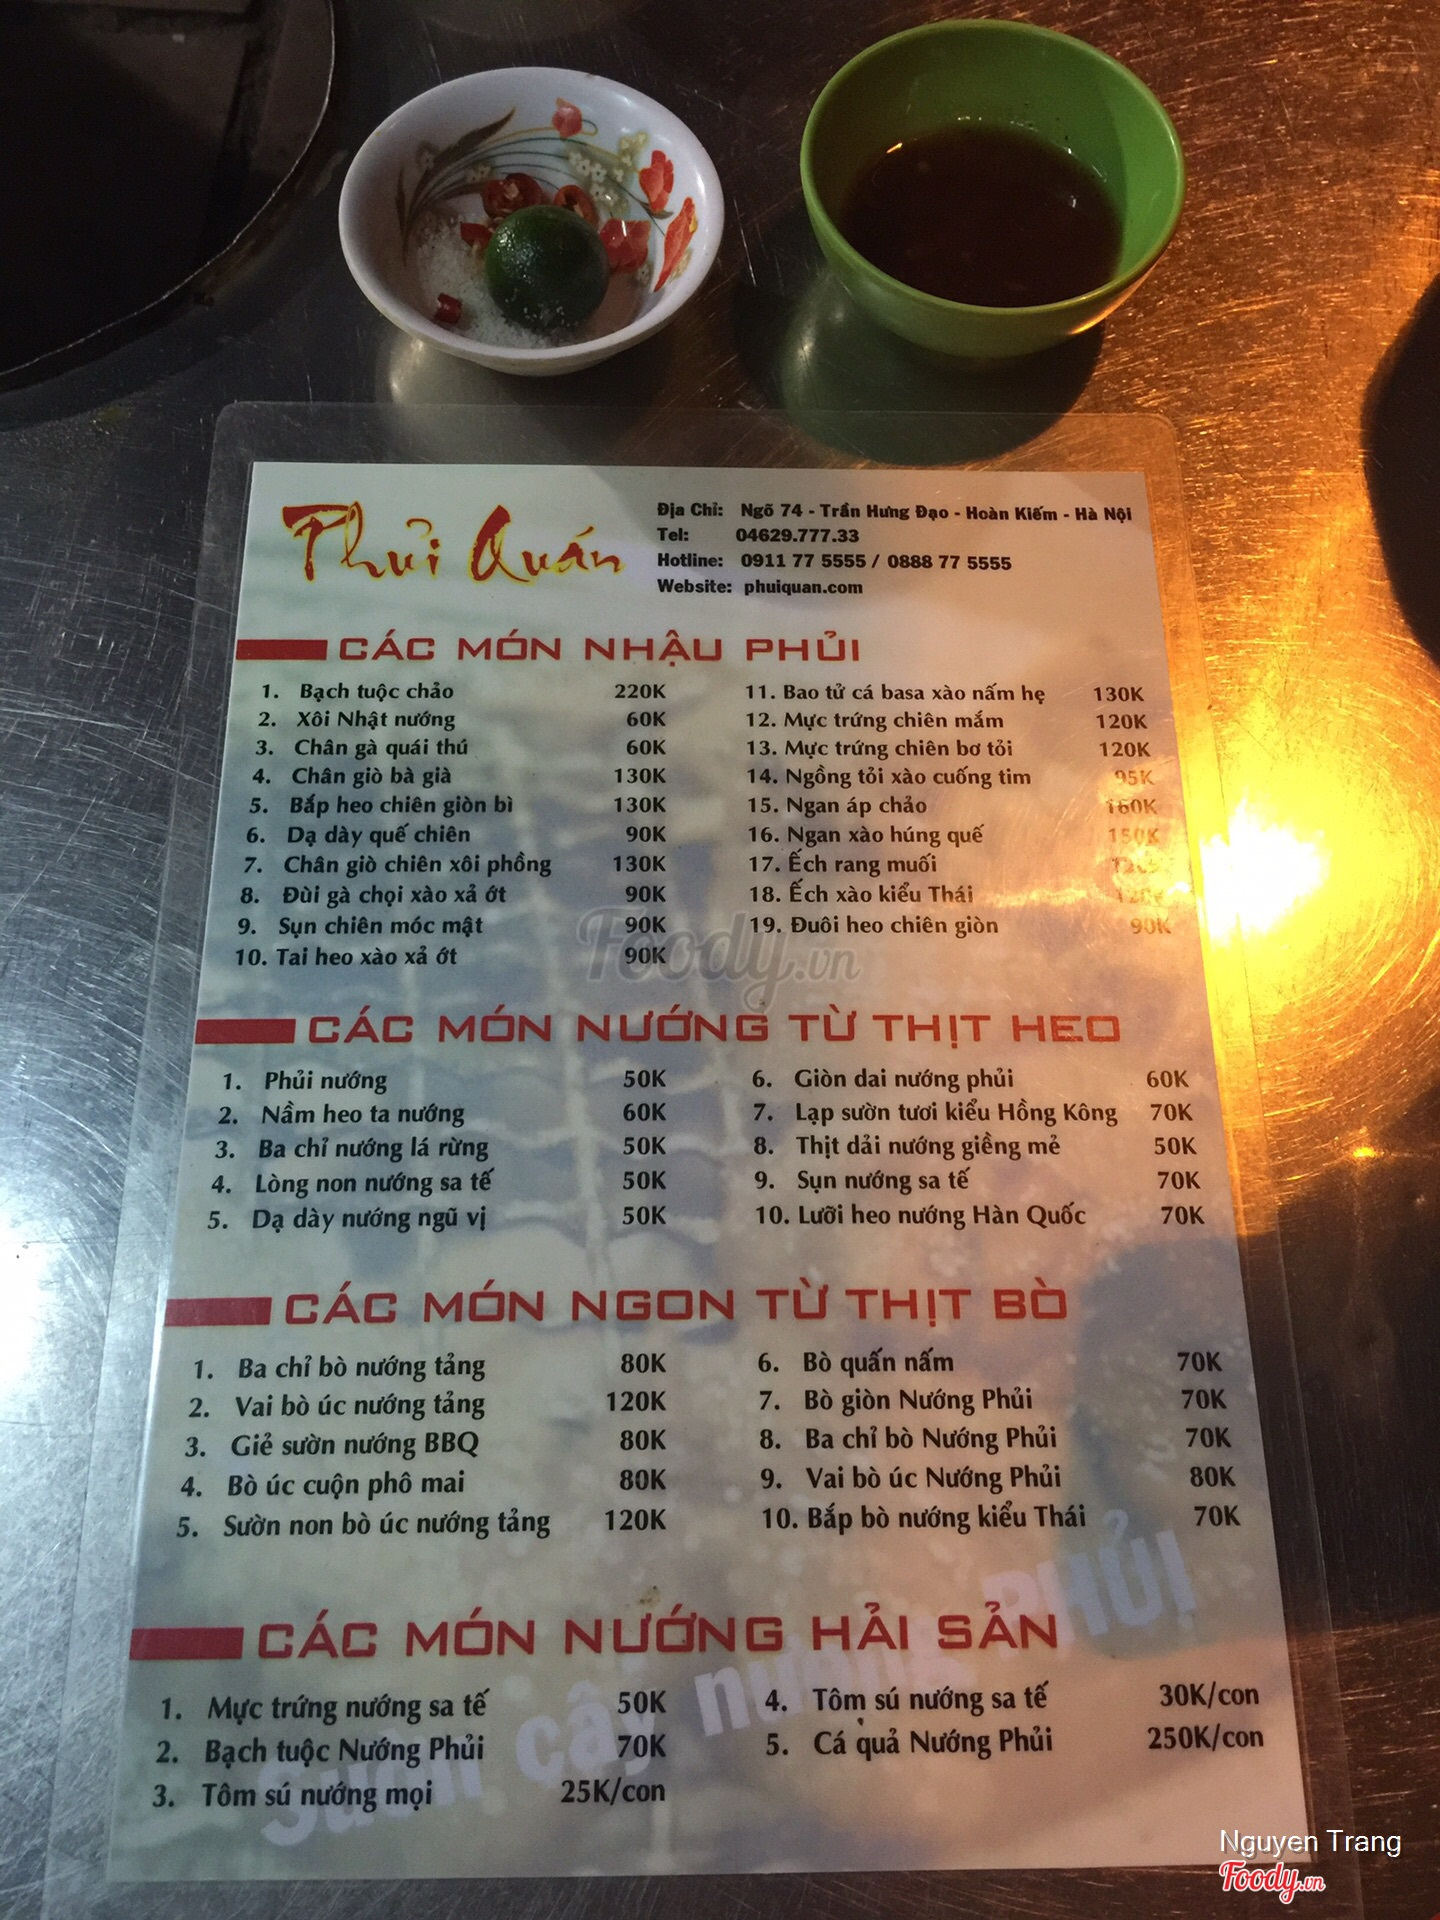 Phủi Quán
Địa Chỉ: Ngõ 74 - Trần Hưng Đạo - Hoàn Kiếm - Hà Nội
Tel: 04629.777.33
Hotline: 0911 77 5555 / 0888 77 5555
Website: phuiquan.com
CÁC MÓN NHẬU PHỦI
1. Bạch tuộc chảo 220K
2. Xôi Nhật nướng 60K
3. Chân gà quái thú 60K
4. Chân giò bà già 130K
5. Bắp heo chiên giòn bì 130K
6. Dạ dày quế chiên 90K
7. Chân giò chiên xôi phồng 130K
8. Đùi gà chọi xào xả ớt 90K
9. Sụn chiên móc mật 90K
10. Tai heo xào xả ớt 90K
11. Bao tử cá basa xào nấm hẹ 130K
12. Mực trứng chiên mắm 120K
13. Mực trứng chiên bơ tỏi 120K
14. Ngồng tỏi xào cuống tim 95K
15. Ngan áp chảo
16. Ngan xào húng quế 150K
17. Ếch rang muối
18. Ếch xào kiểu Thái 120K
19. Đuôi heo chiên giòn 90K
Foody.vn
CÁC MÓN NƯỚNG TỪ THỊT HEO
1. Phủi nướng 50K
2. Nầm heo ta nướng 60K
3. Ba chỉ nướng lá rừng 50K
4. Lòng non nướng sa tế 50K
5. Dạ dày nướng ngũ vị 50K
6. Giòn dai nướng phủi 60K
7. Lạp sườn tươi kiểu Hồng Kông 70K
8. Thịt dải nướng giềng mẻ 50K
9. Sụn nướng sa tế 70K
10. Lưỡi heo nướng Hàn Quốc 70K
CÁC MÓN NGON TỪ THỊT BÒ
1. Ba chỉ bò nướng tảng 80K
2. Vai bò úc nướng tảng 120K
3. Giẻ sườn nướng BBQ 80K
4. Bò úc cuộn phô mai 80K
5. Sườn non bò úc nướng tảng 120K
6. Bò quấn nấm 70K
7. Bò giòn Nướng Phủi 70K
8. Ba chỉ bò Nướng Phủi 70K
9. Vai bò úc Nướng Phủi 80K
10. Bắp bò nướng kiểu Thái 70K
CÁC MÓN NƯỚNG HẢI SẢN
1. Mực trứng nướng sa tế 50K
2. Bạch tuộc Nướng Phủi 70K
3. Tôm sú nướng mọi 25K/con
4. Tôm sú nướng sa tế 30K/con
5. Cá quả Nướng Phủi 250K/con
Sườn cây nướng PHỦI
Nguyen Trang
Foody.vn